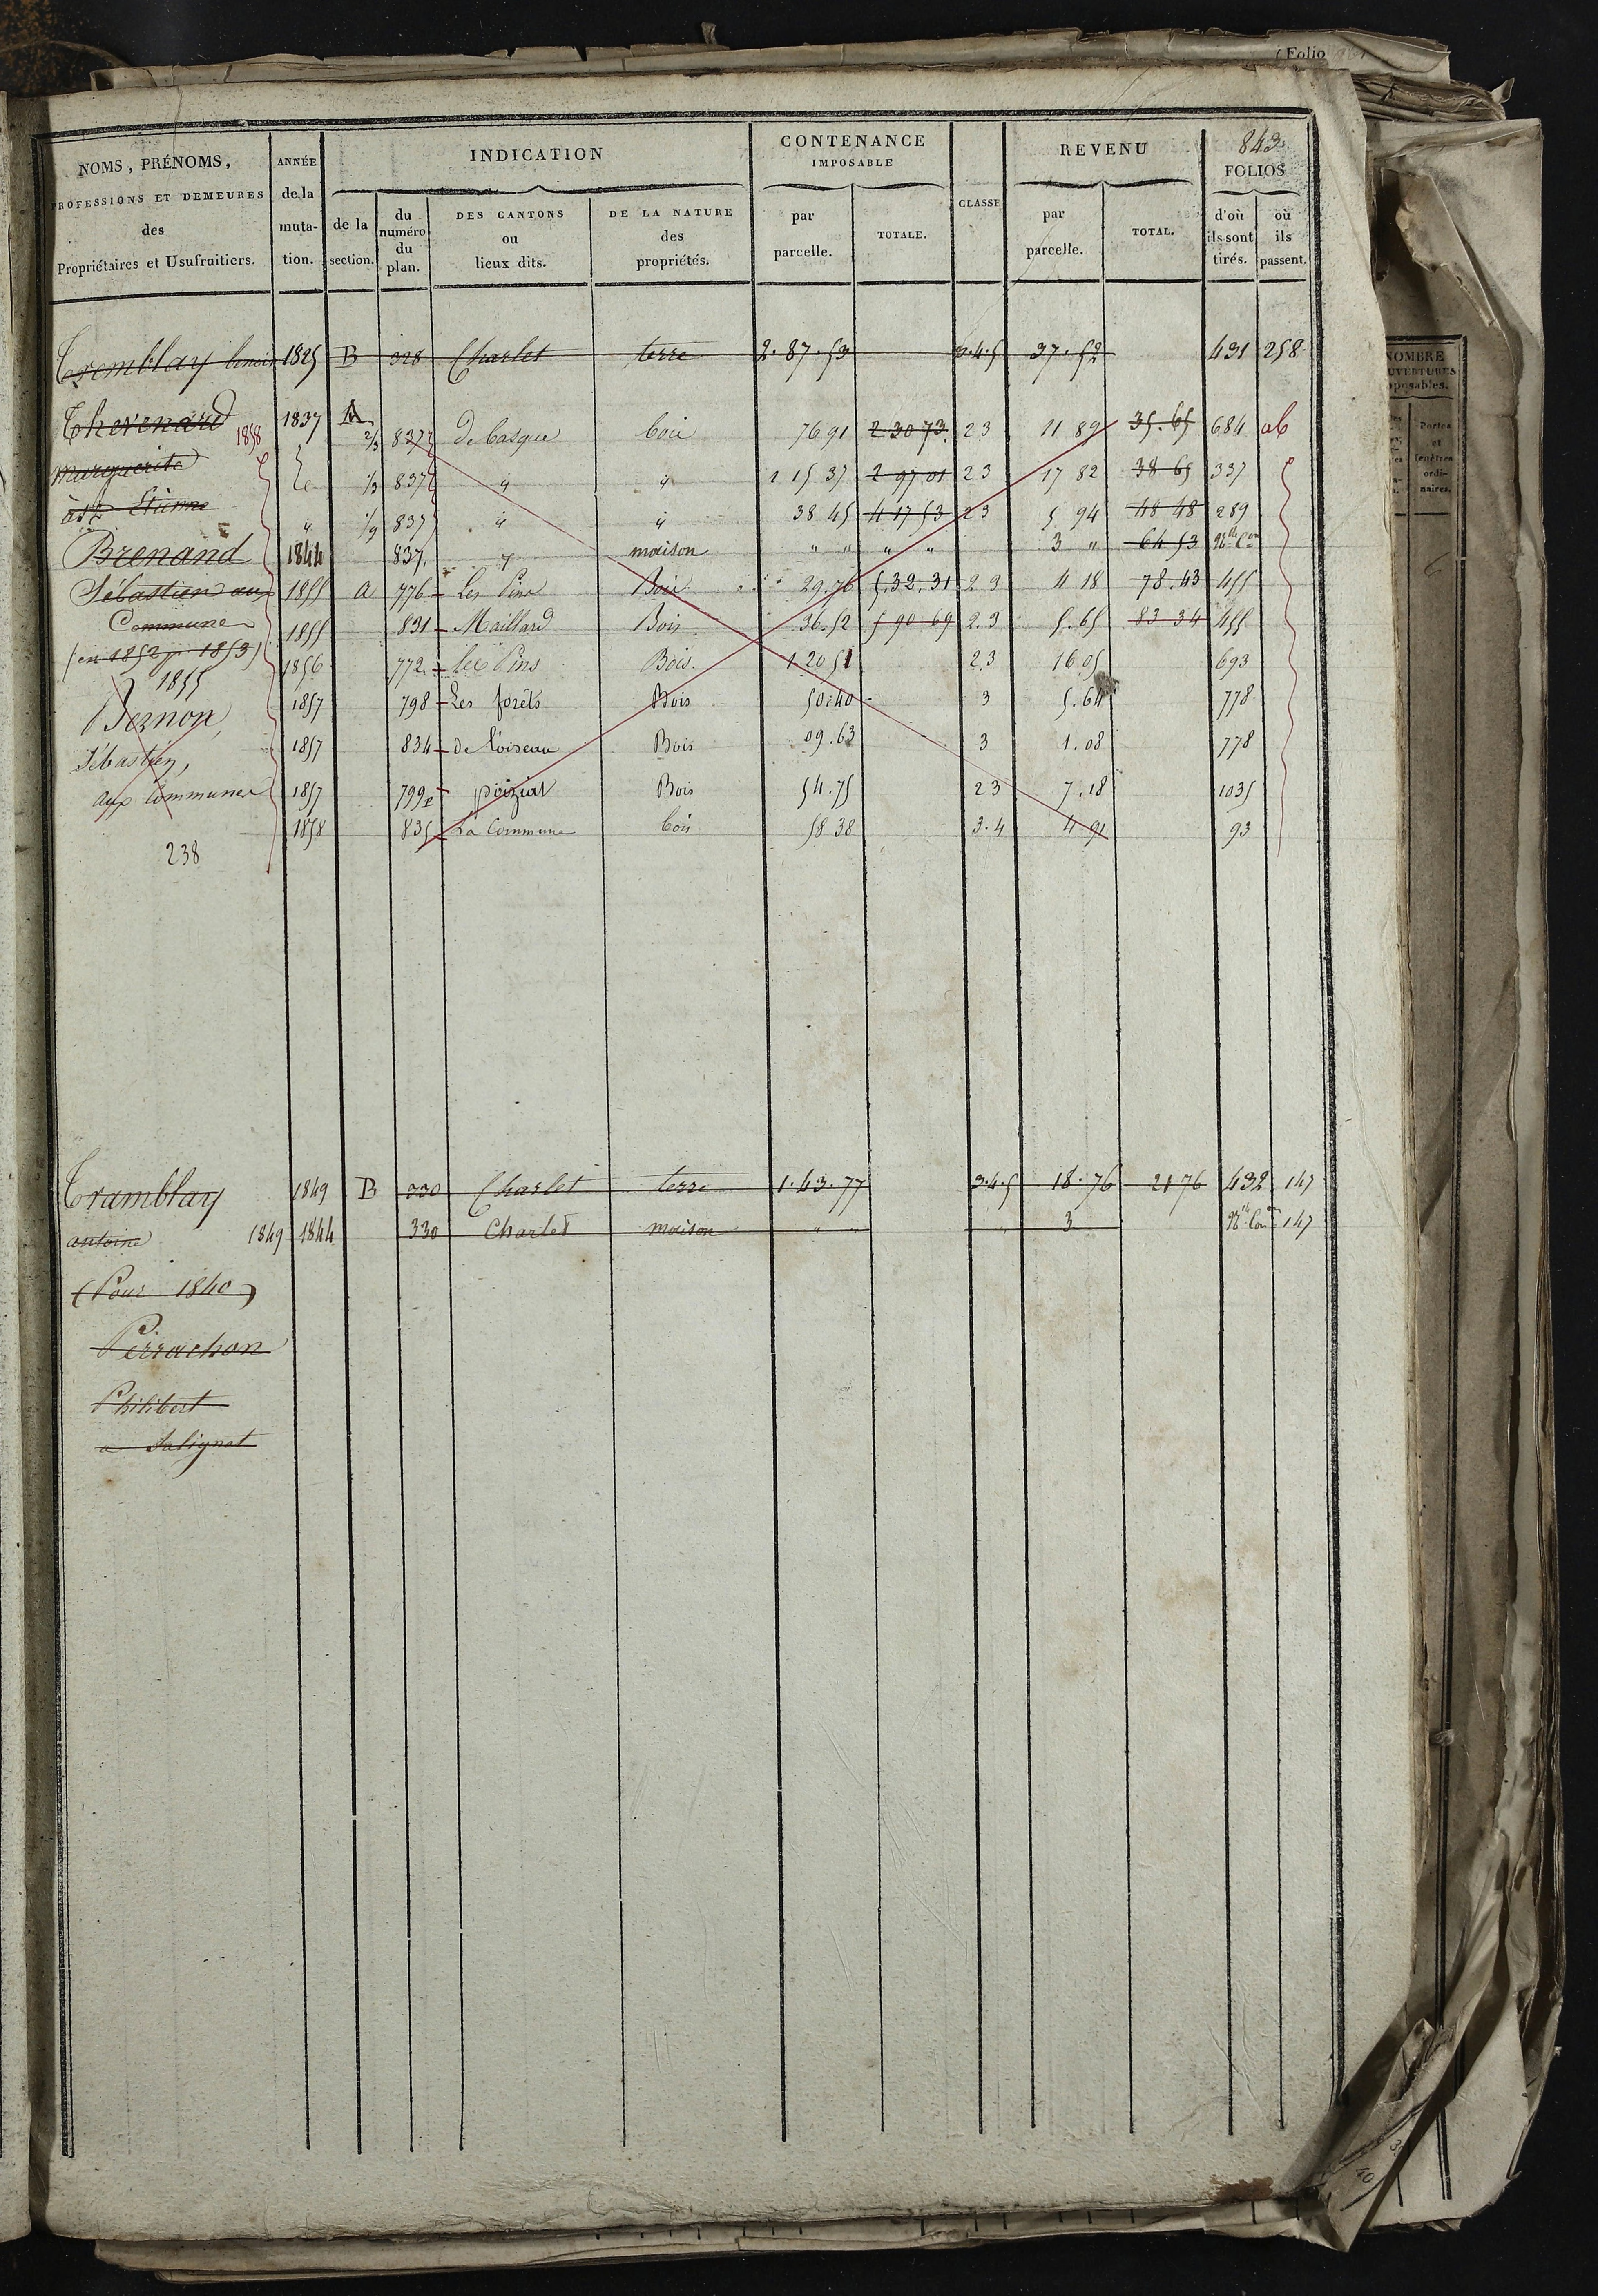 (Folio
843
NOMS, PRÉNOMS,
PROFESSIONS ET DEMEURES
des
Propriétaires et Usufruitiers.
ANNÉE
de la
muta-
tion.
INDICATION
de la
section.
du
numéro
du
plan.
DES CANTONS
ou
lieux dits.
DE LA NATURE
des
propriétés.
CONTENANCE
IMPOSABLE
par
parcelle.
TOTALE.
CLASSE
REVENU
par
parcelle.
TOTAL.
FOLIOS
d'où
ils sont
tirés.
où
ils
passent.
Tremblay benoit 1825 B 328 Charlet terre 2.87.53 3.4.5 37.52 431 258
Thevenard 1858
Marguerite
à St Etienne
Brenand
Sébastien aux
Communes
(en 1852 pr 1853)
1855
Bernon
Sébastien,
aux Communes
238
1837 A 2/3 837 de basque bois 76 91 2 30 73 23 11 89 35.65 684 ab
1/3 837 " " 1 15 37 2 97 01 23 17 82 38 65 337
" 1/9 837 " " 38 45 4 17 53 23 5 94 48 48 289
1844 837 " maison " " " " 3 " 64 53 Nlle Con
1855 a 776 Les Pins Bois 29.76 5.32.31 2 3 4 18 78.43 455
1855 831 Maillard Bois 36.52 5 90 69 2.3 5.65 83 34 455
1856 772 les Pins Bois 1 20 51 2.3 16.05 693
1857 798 Les forêts Bois 50.40 3 5.64 778
1857 834 de l'oiseau Bois 09.63 3 1.08 778
1857 799 poiziat Bois 54.75 23 7.18 1035
1858 835 La Commune bois 58 38 3.4 4 91 93
Tramblay 1849 B 330 Charlet terre 1.43.77 3.4.5 18.76 21 76 432 147
antoine 1849 1844 330 Charlet maison " " " 3 Nlle Con 147
(Pour 1840)
Perrachon
Philibert
a Salignat
NOMBRE
OUVERTURES
imposables.
Portes
et
fenêtres
ordi-
naires.